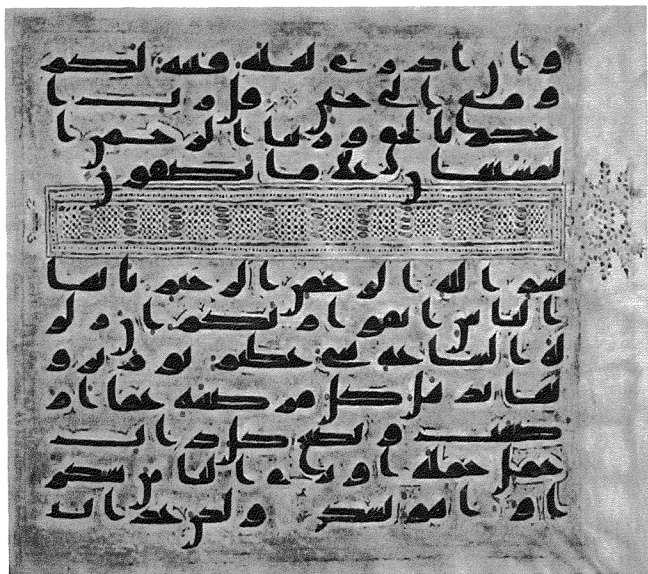 وان ادرى لعله فتنة لكم
ومتع الى حين قل رب ا
حكم بالحق وربنا الرحمن ا
لمستعن على ما تصفون
بسم الله الرحمن الرحيم يايها
الناس اتقوا ربكم ان زلز
لة الساعة شى عظيم يوم ترو
نها تذهل كل مرضعة عما ار
ضعت وتضع كل ذات
حمل حملها وترى الناس سكر
ى وما هم بسكرى ولكن عذاب